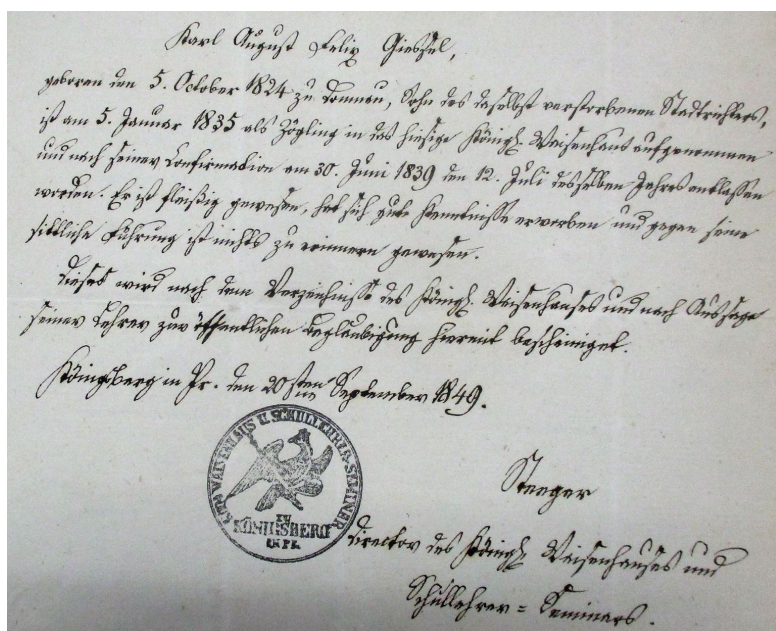 Karl August Felix Giessel,
geboren den 5. October 1824 zu Domnau, Sohn des daselbst verstorbenen Stadtrichters,
ist am 5. Januar 1835 als Zögling in das hiesige Königl. Waisenhaus aufgenommen
und nach seiner Confirmation am 30. Juni 1839 den 12. Juli desselben Jahres entlassen
worden. Er ist fleißig gewesen, hat sich gute Kenntnisse erworben und gegen seine
sittliche Führung ist nichts zu erinnern gewesen.
Dieses wird nach dem Verzeichnisse des Königl. Waisenhauses und nach Aussage
seiner Lehrer zur öffentlichen Beglaubigung hiermit bescheiniget.
Königsberg in Pr. den 20sten September 1849.
KÖN. WAISENHAUS U. SCHULLEHRER-SEMINAR
ZU
KÖNIGSBERG
IN PR.
Steeger
Director des Königl. Waisenhauses und
Schullehrer-Seminars.